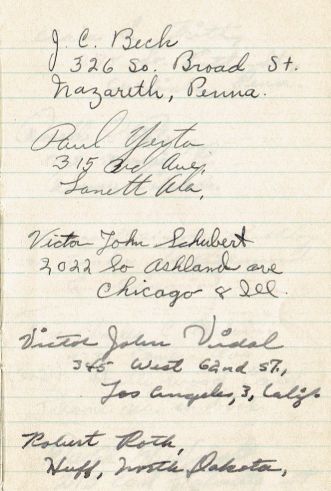 J. C. Beck
326 So. Broad St.
Nazareth, Penna.
Paul Yerta
315 Ave,
Lanett Ala,
Victor John Schubert
2022 So Ashland ave
Chicago & Ill.
Victor John Vidal
345 West 62nd St.,
Los Angeles, 3, Calif.
Robert Roth,
Huff, North Dakota,